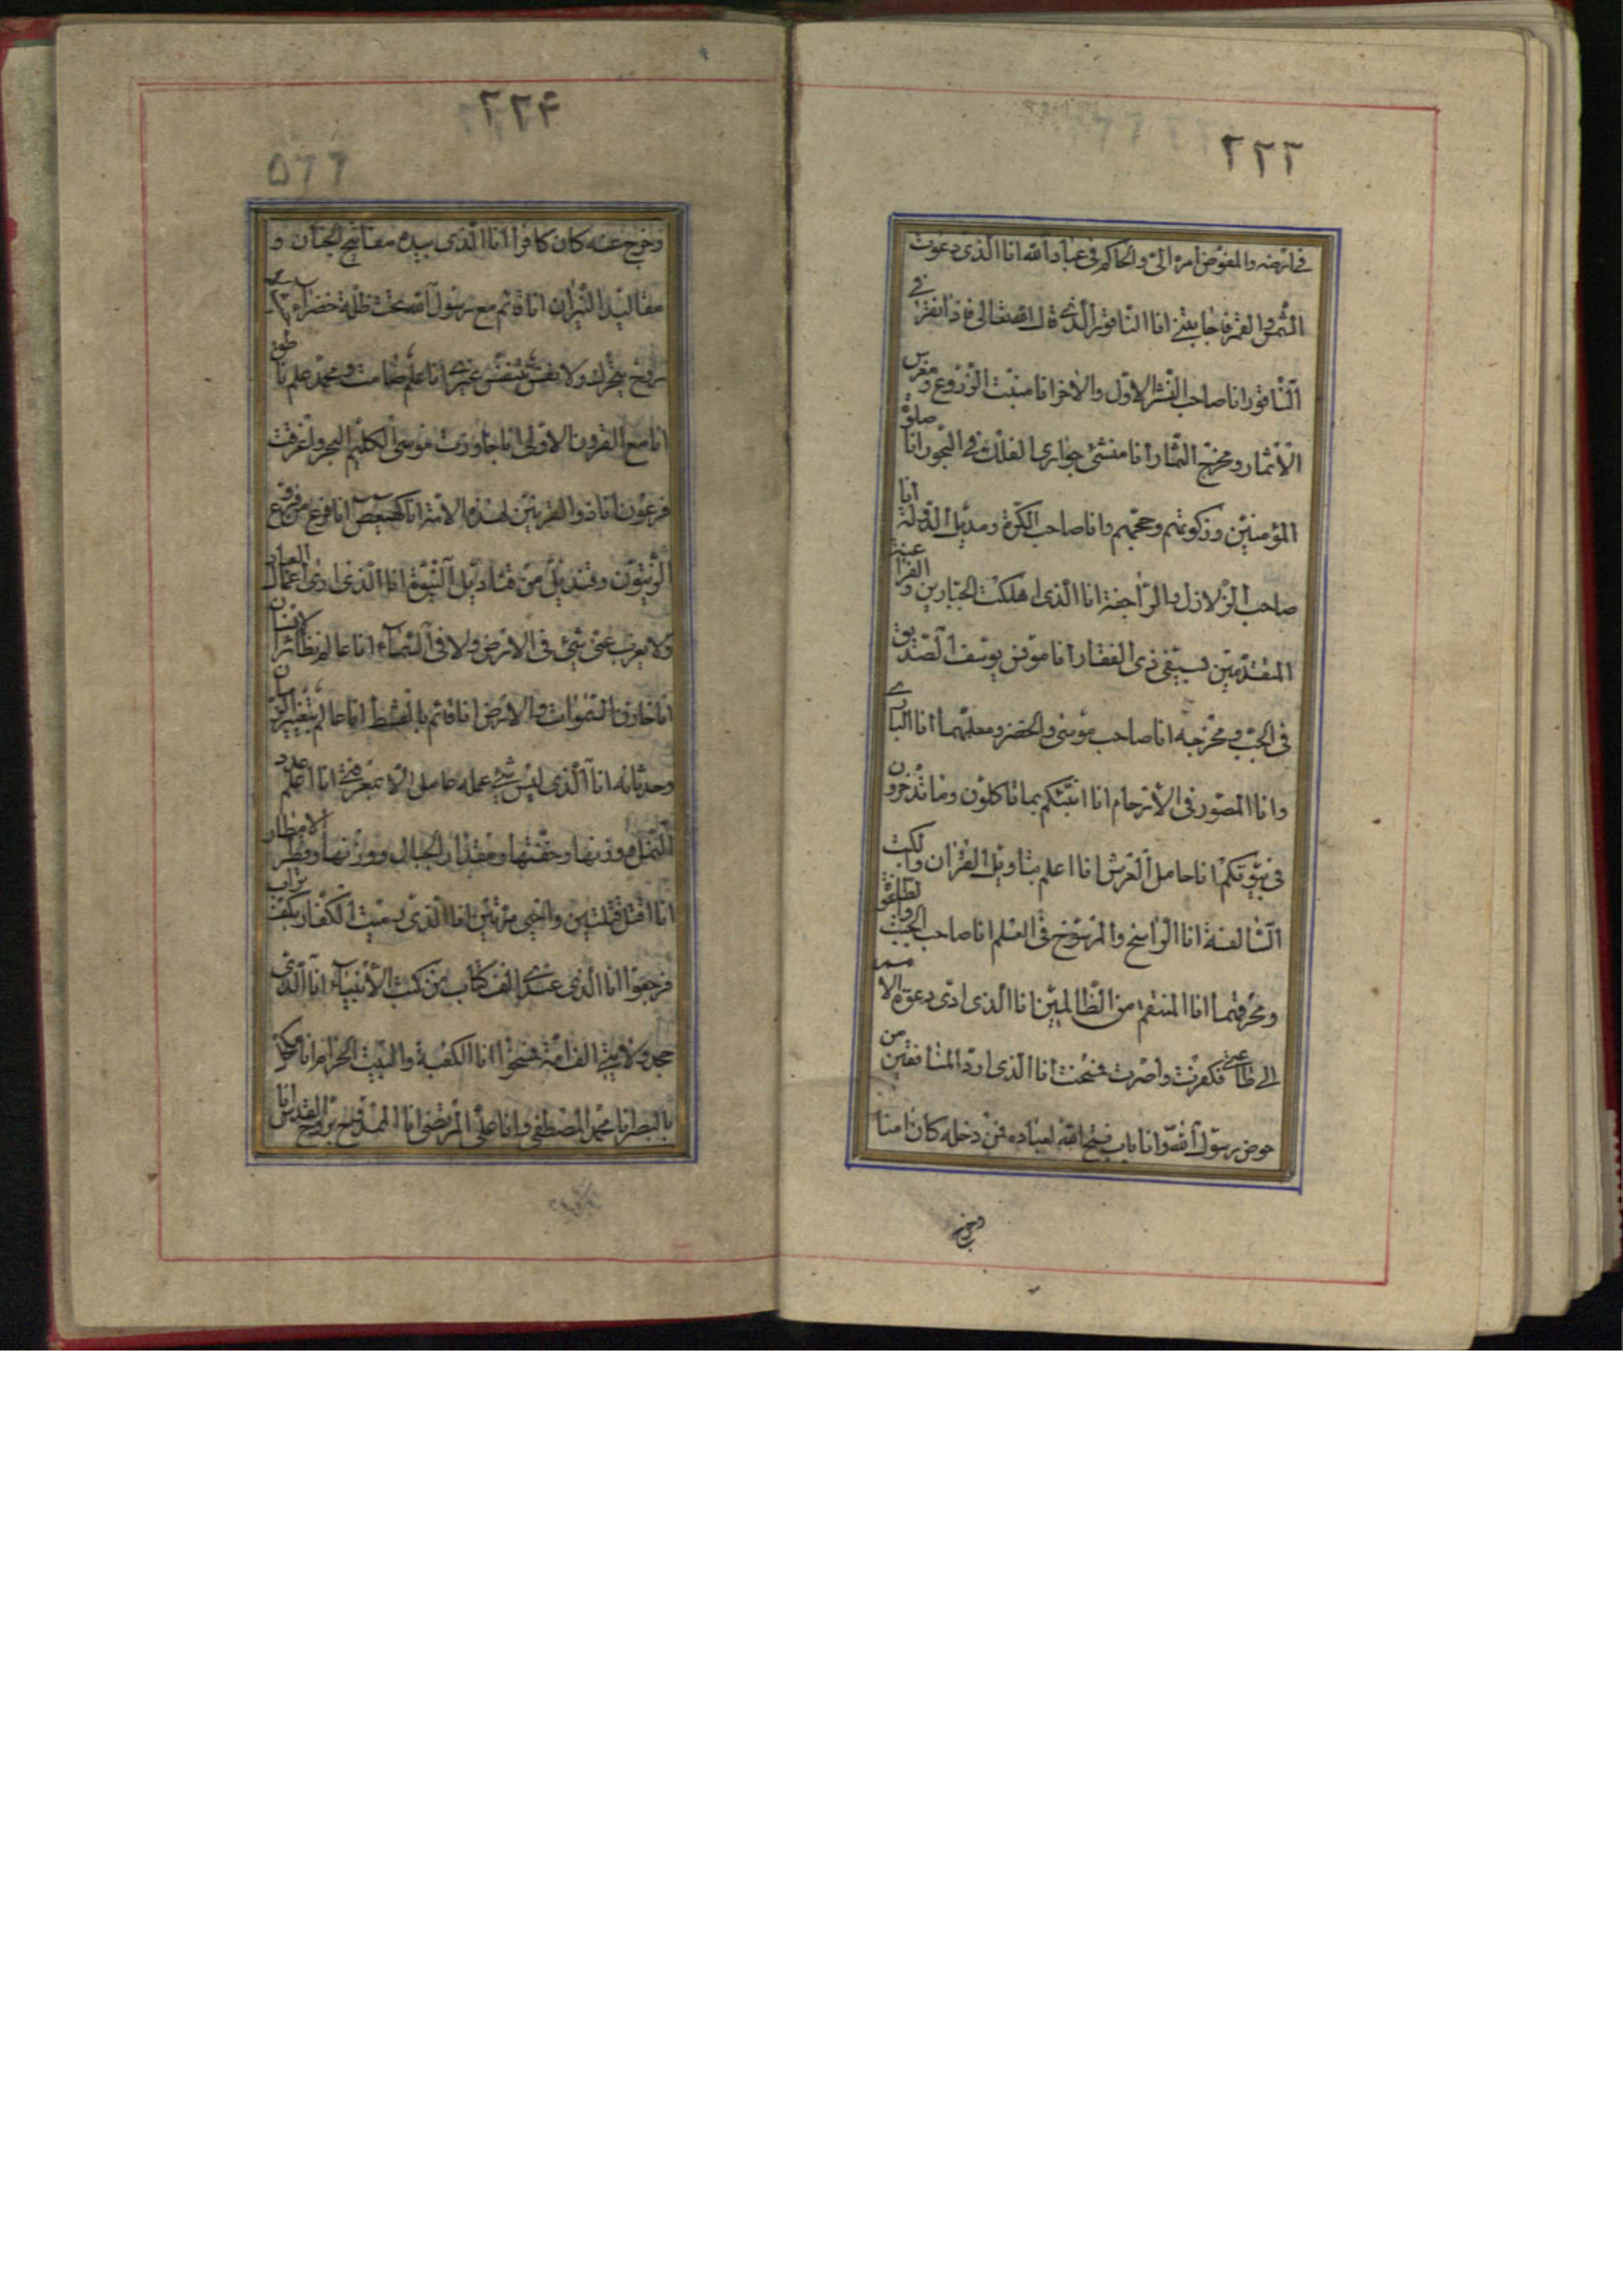 ٢٢٣
في ارضه والمفوض امره الي والحاكم في عباد الله انا الذي دعوت
الشمس والقمر فاجابتني انا الناقور الذي قال الله تعالى فاذا نقر في
الناقور انا صاحب النشر الاول والاخر انا منبت الزروع و مغرس
الاثمار ومخرج الثمار انا منشئ جواري الفلك في البحور انا صلوة
المؤمنين وزكوتهم وحجهم وانا صاحب الكرة ومديل الدولة انا
صاحب الزلازل والراجفة انا الذي اهلكت الجبارين و الفراعنة
المتقدمين بسيفي ذي الفقار انا مونس يوسف الصديق
في الجب ومخرجه انا صاحب موسى والخضر ومعلمهما انا الباري
وانا المصور في الارحام انا انبئكم بما تاكلون وما تدخرون
في بيوتكم انا حامل العرش انا اعلم بتاويل القران والكتب
السالفة انا الراسخ والرسوخ في العلم انا صاحب الجبت والطاغوت
ومحرقهما انا المنتقم من الظالمين انا الذي ادى دعوة الامم
الى طاعتي فكفرت واصرت فمسخت انا الذي اود المنافقين من
حوض رسول الله وانا باب فتح الله لعباده فمن دخله كان امنا
ومن خرج
٢٢۴
٥٦٦
ومن خرج عنه كان كافرا انا الذي بيده مفاتيح الجنان و
مقاليد النيران انا قائم مع رسول الله تحت ظلة خضراء
روح يتحرك ولا نفس يتنفس غيري انا علم صامت ومحمد علم ناطق
انا مع القرون الاولى انا جاوزت موسى الكليم البحر واغرقت
فرعون انا ذوالقرنين لهذه الامة انا كهيعص انا فرع من فروع
الزيتون وقنديل من قناديل النبوة انا الذي ارى اعمال العباد
ولا يعزب عني شيئ في الارض ولا في السماء انا عالم بظائر
انا خازن السموات والارض انا قائم بالقسط انا عالم بتغيير الزمان
وحدثانه انا الذي ليس شيئ عمله عامل الا بمعرفتي انا اعلم عدد
النمل ووزنها وخفتها ومقدار الجبال ووزنها وقطر الامطار
انا اقتل قتلتين واحيي مرتين انا الذي رميت الكفار بكف تراب
فرجعوا انا الذي عندي الف كتاب من كتب الانبياء انا الذي
جحد ولايتي الف امة فمسخوا انا الكعبة والبيت الحرام انا
انا محمد المصطفى وانا علي المرتضى انا الممدوح بروح القدس انا